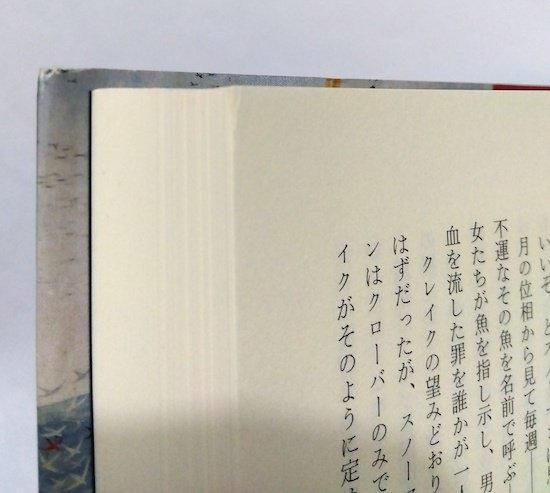 月の位相から見て毎週――
不運なその魚を名前で呼ぶ
女たちが魚を指し示し、男
血を流した罪を誰かが一
クレイクの望みどおり
はずだったが、スノー
ンはクローバーのみで
イクがそのように定